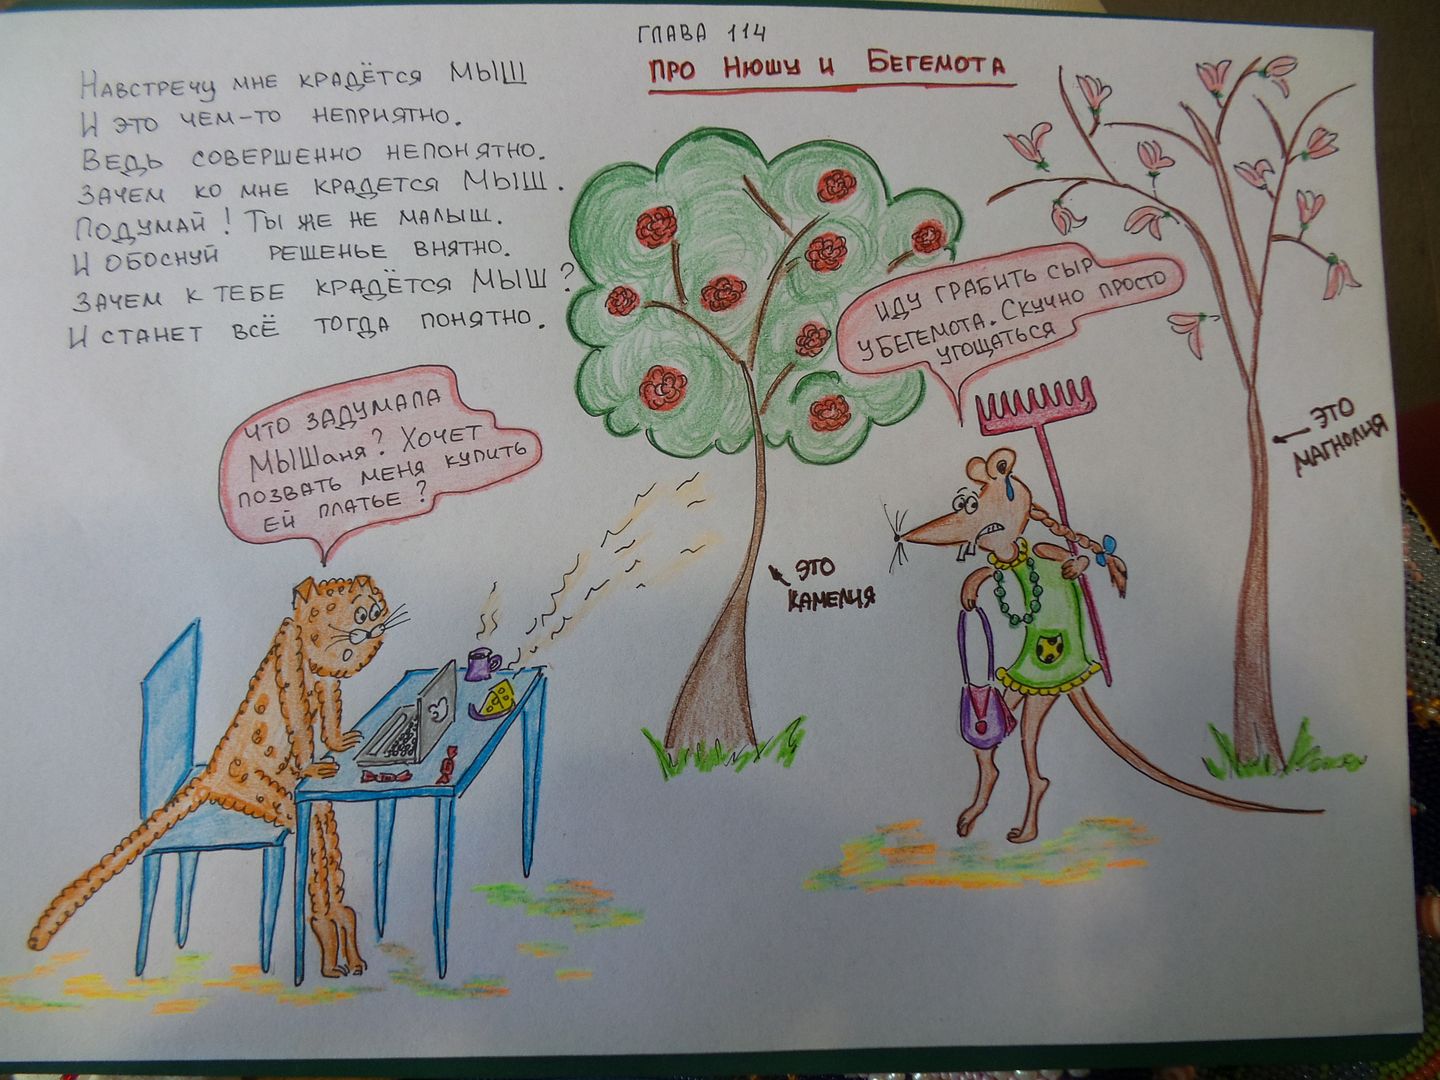 ГЛАВА 114
ПРО НЮШУ И БЕГЕМОТА
НАВСТРЕЧУ МНЕ КРАДЁТСЯ МЫШ
И ЭТО ЧЕМ-ТО НЕПРИЯТНО.
ВЕДЬ СОВЕРШЕННО НЕПОНЯТНО.
ЗАЧЕМ КО МНЕ КРАДЕТСЯ МЫШ.
ПОДУМАЙ! ТЫ ЖЕ НЕ МАЛЫШ.
И ОБОСНУЙ РЕШЕНЬЕ ВНЯТНО.
ЗАЧЕМ К ТЕБЕ КРАДЁТСЯ МЫШ?
И СТАНЕТ ВСЁ ТОГДА ПОНЯТНО.
ЧТО ЗАДУМАЛА
МЫШаня? ХОЧЕТ
ПОЗВАТЬ МЕНЯ КУПИТЬ
ЕЙ ПЛАТЬЕ?
ИДУ ГРАБИТЬ СЫР
У БЕГЕМОТА. СКУЧНО ПРОСТО
УГОЩАТЬСЯ
ЭТО
КАМЕЛИЯ
ЭТО
МАГНОЛИЯ